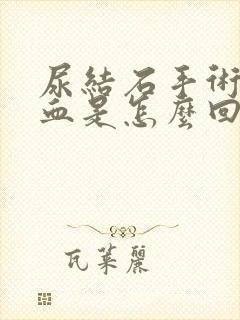 尿結石手術
血是怎麼回
瓦萊麗